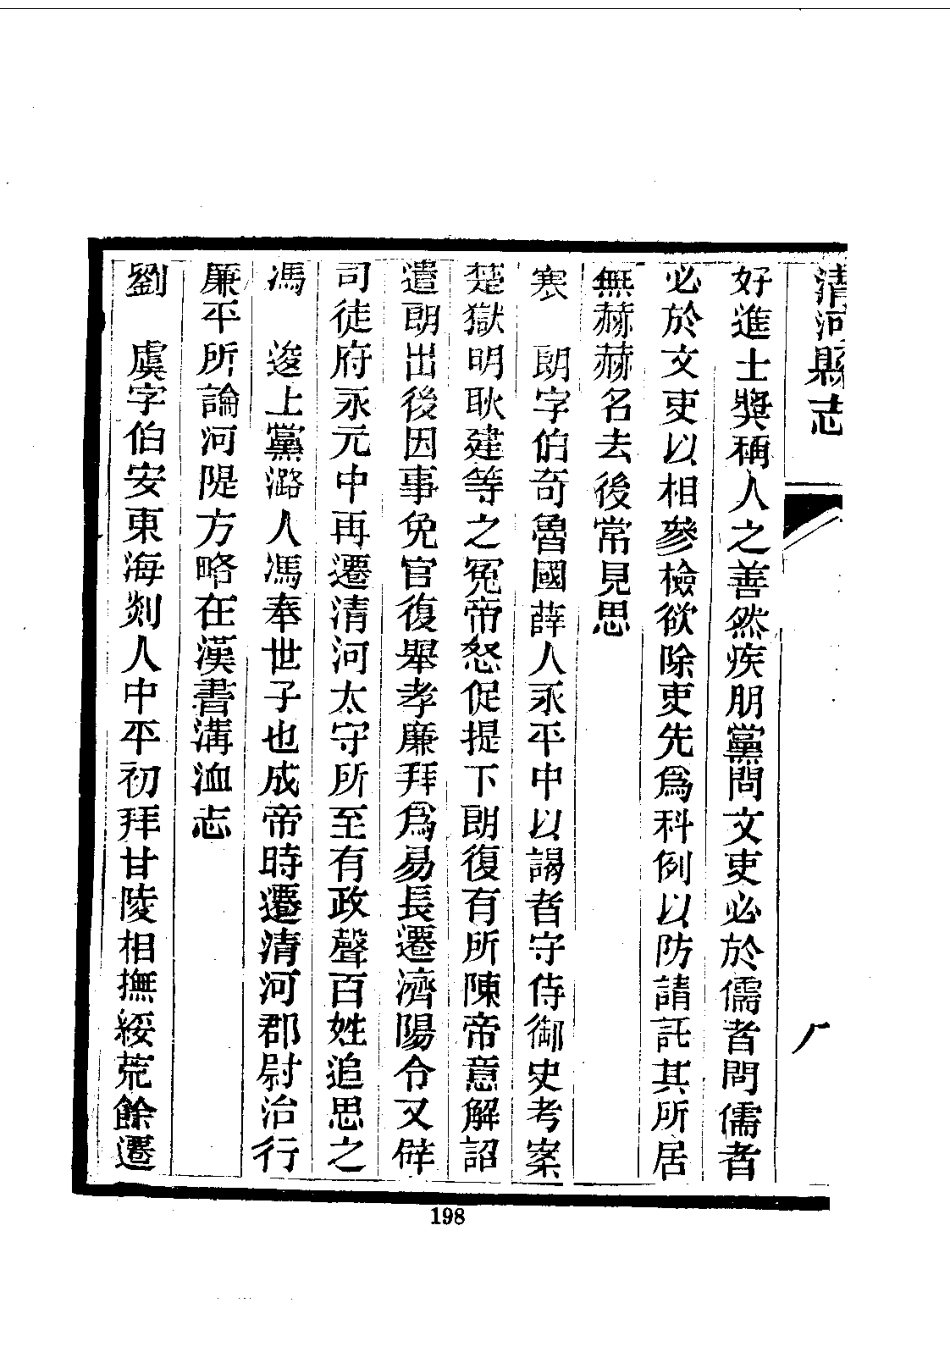 清河縣志
好進士獎稱人之善然疾朋黨問文吏必於儒者問儒者
必於文吏以相參檢欲除吏先爲科例以防請託其所居
無赫赫名去後常見思
寒　朗字伯奇魯國薛人永平中以謁者守侍御史考案
楚獄明耿建等之冤帝怒促提下朗復有所陳帝意解詔
遣朗出後因事免官復舉孝廉拜爲易長遷濟陽令又辟
司徒府永元中再遷清河太守所至有政聲百姓追思之
馮　逡上黨潞人馮奉世子也成帝時遷清河郡尉治行
廉平所論河隄方略在漢書溝洫志
劉　虞字伯安東海剡人中平初拜甘陵相撫綏荒餘遷
198